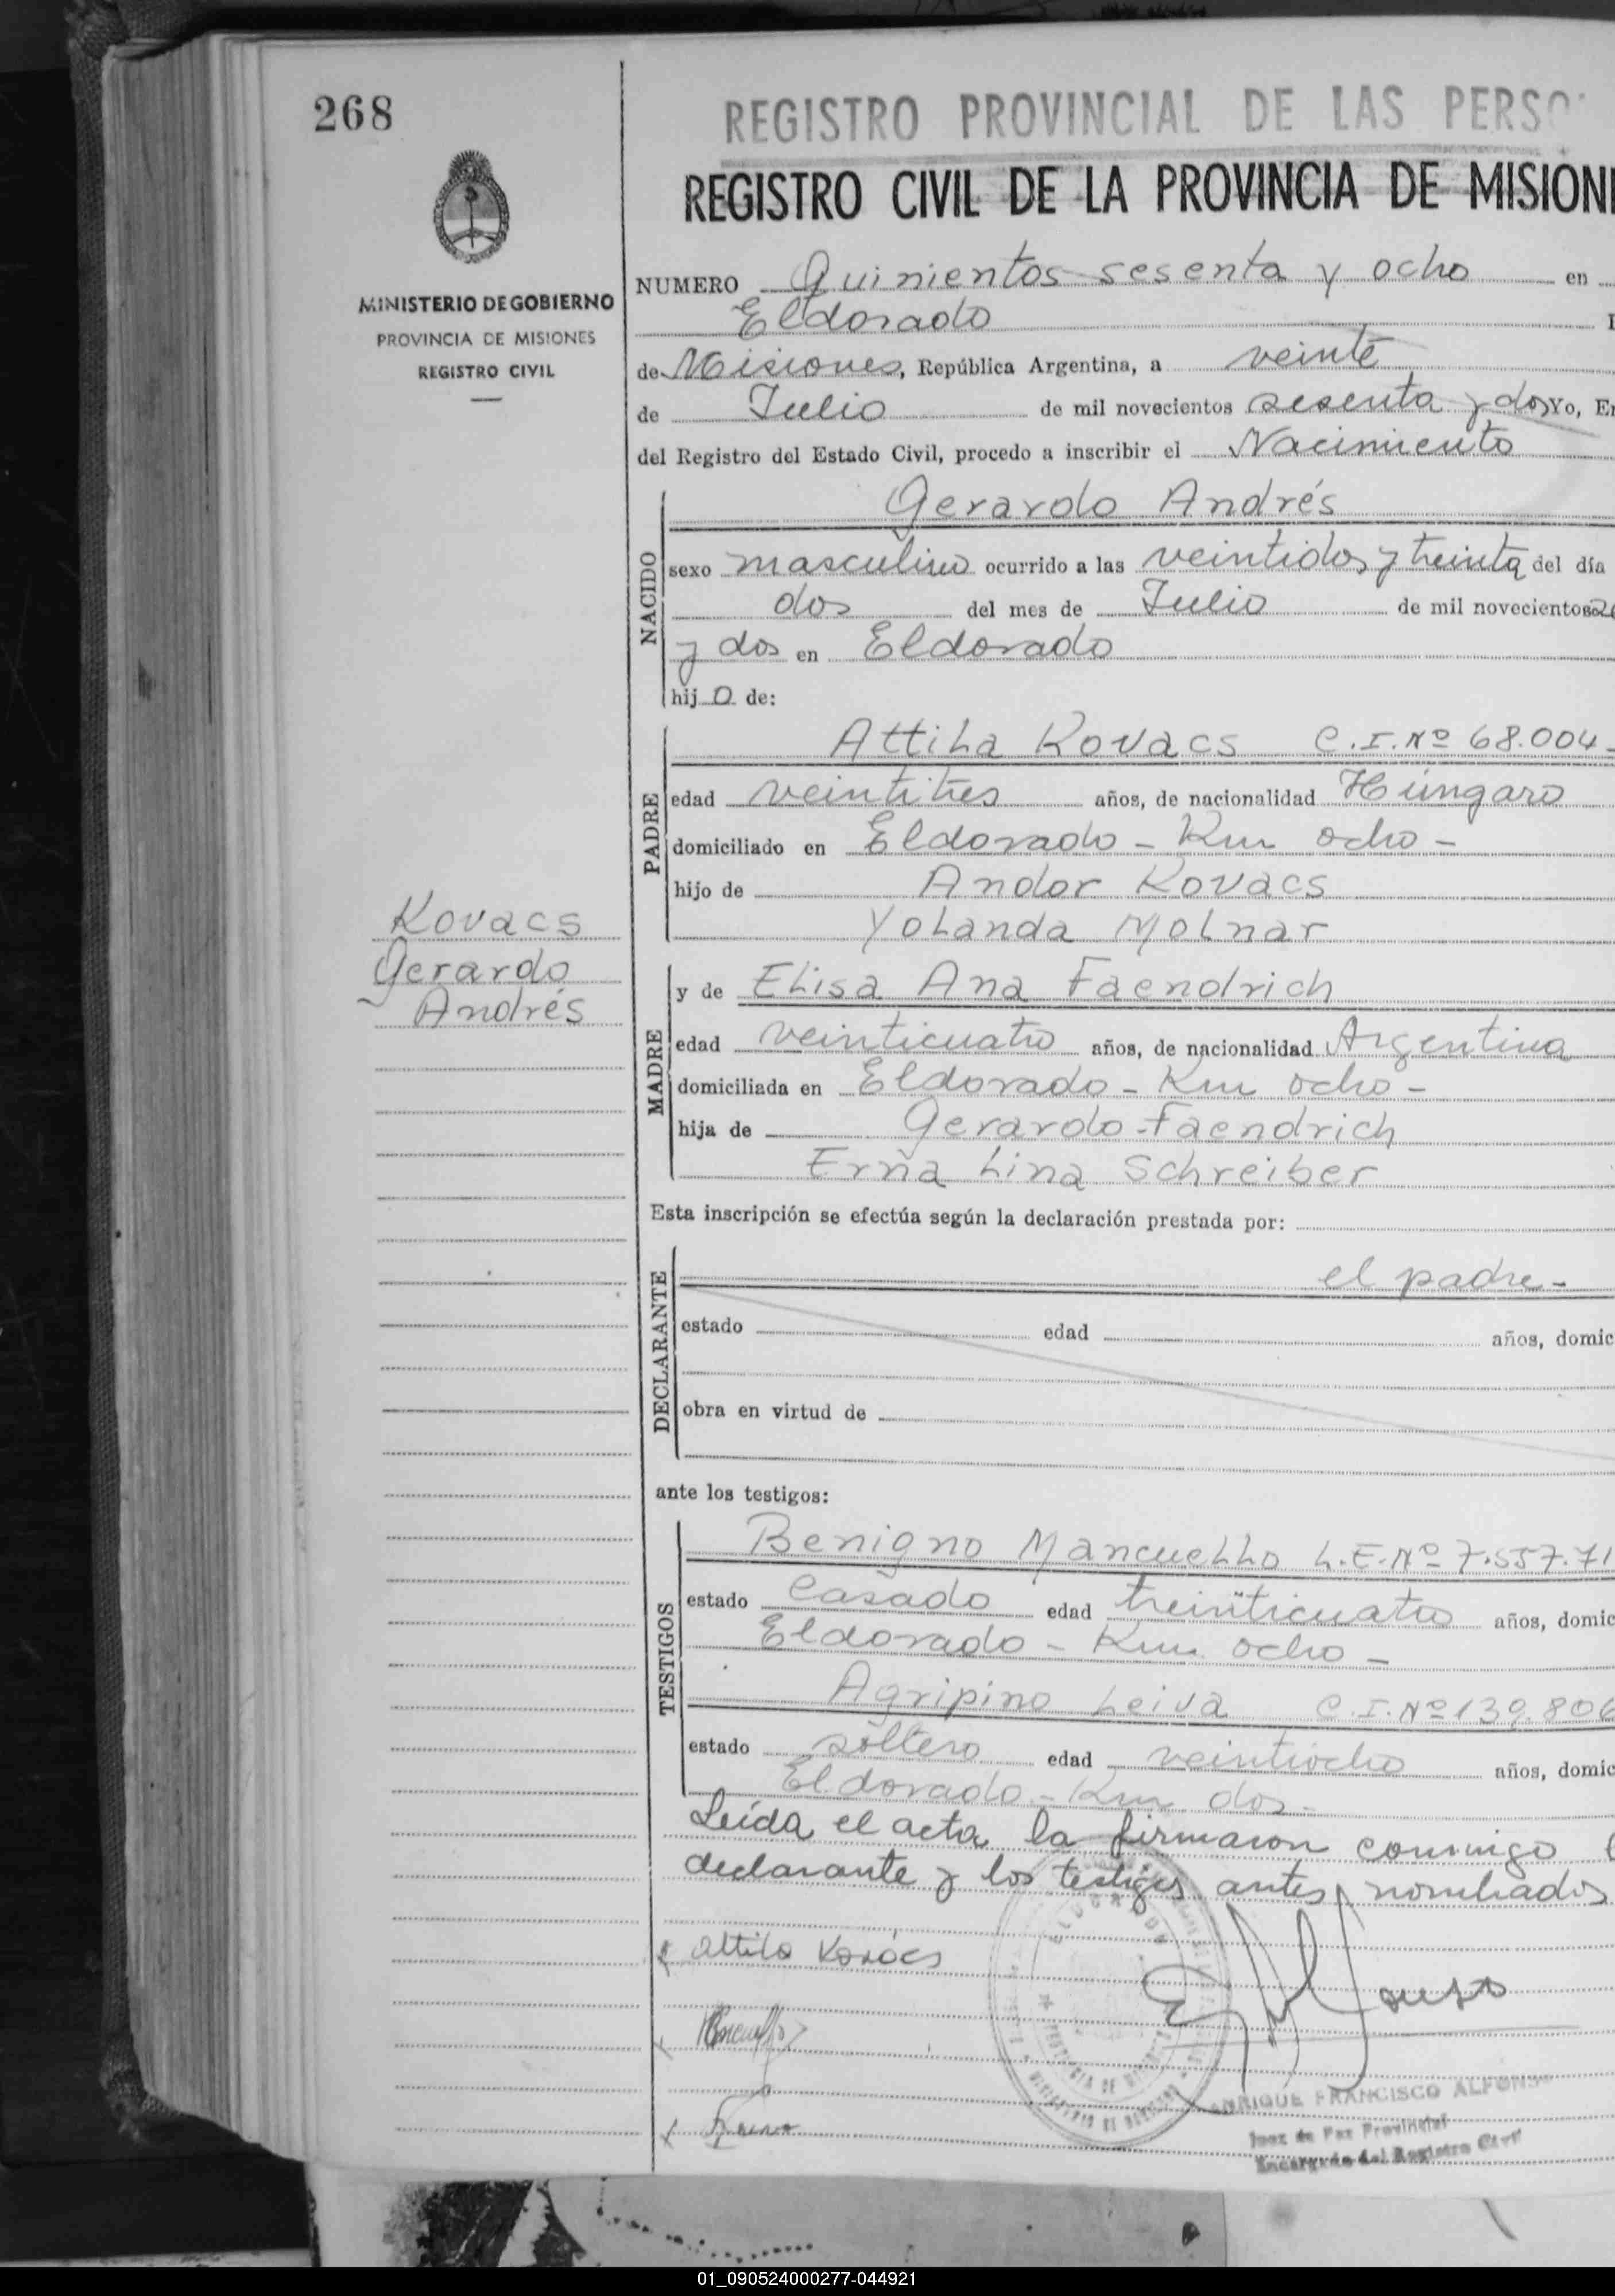 268
REGISTRO PROVINCIAL DE LAS PERSO
REGISTRO CIVIL DE LA PROVINCIA DE MISION
MINISTERIO DE GOBIERNO
PROVINCIA DE MISIONES
REGISTRO CIVIL
NUMERO Quinientos sesenta y ocho en
Eldorado
de Misiones, República Argentina, a veinte
de Julio de mil novecientos sesenta y dos Yo, En
del Registro del Estado Civil, procedo a inscribir el Nacimiento
NACIDO
Gerardo Andrés
sexo masculino ocurrido a las veintidos y treinta del día
dos del mes de Julio de mil novecientos
y dos en Eldorado
hijo de:
PADRE
Attila Kovacs C.I.Nº 68.004-
edad veintitres años, de nacionalidad Húngaro
domiciliado en Eldorado - Km ocho -
hijo de Andor Kovacs
Yolanda Molnar
Kovacs
Gerardo
Andrés
MADRE
y de Elisa Ana Faendrich
edad veinticuatro años, de nacionalidad Argentina
domiciliada en Eldorado - Km ocho -
hija de Gerardo Faendrich
Erna Lina Schreiber
Esta inscripción se efectúa según la declaración prestada por:
DECLARANTE
el padre-
estado edad años, domic
obra en virtud de
ante los testigos:
TESTIGOS
Benigno Mancuello L.E.Nº 7.557.71
estado Casado edad treinticuatro años, domic
Eldorado - Km ocho -
Agripino Leiva C.I.Nº 139.806
estado soltero edad veintiocho años, domic
Eldorado - Km dos-
Leída el acta la firmaron conmigo
declarante y los testigos antes nombrados
Attila Kovács
ENRIQUE FRANCISCO ALFONSO
Juez de Paz Provincial
Encargado del Registro Civil
01_090524000277-044921